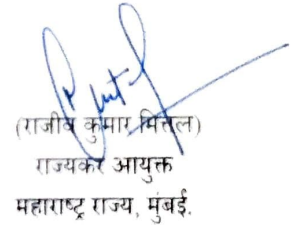 (राजीव कुमार मित्तल)
राज्यकर आयुक्त
महाराष्ट्र राज्य, मुंबई.